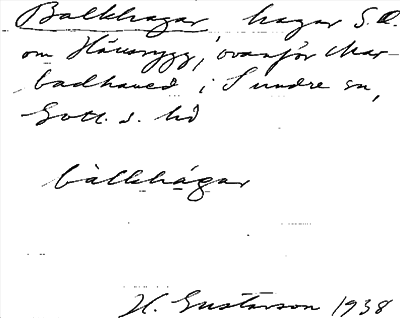 Balkhagar hagar S.O.
om Häusrygg, ovanför Mar-
badhaued i Sundre sn,
Gotl. s. hd
bàlkhágar
H. Gustavson 1938